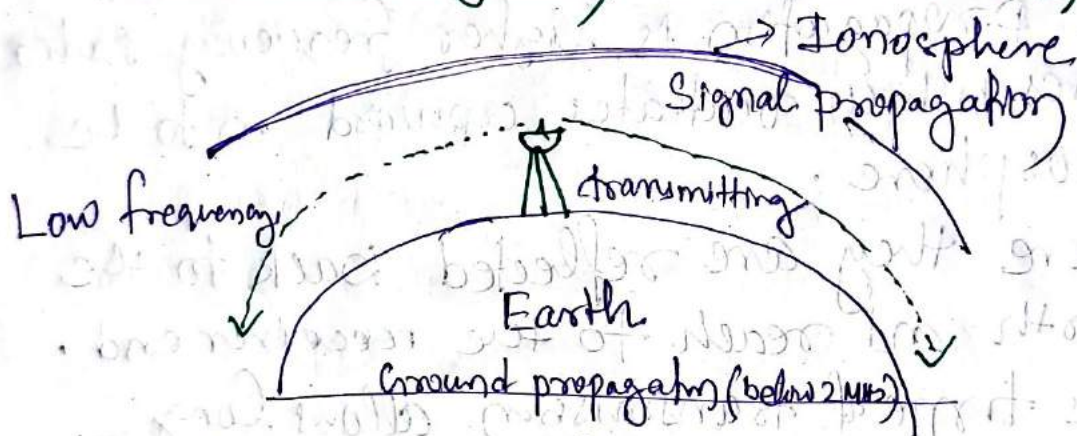 Ionosphere
Signal propagation
Low frequency
transmitting
Earth
Ground propagatn (below 2 MHz)